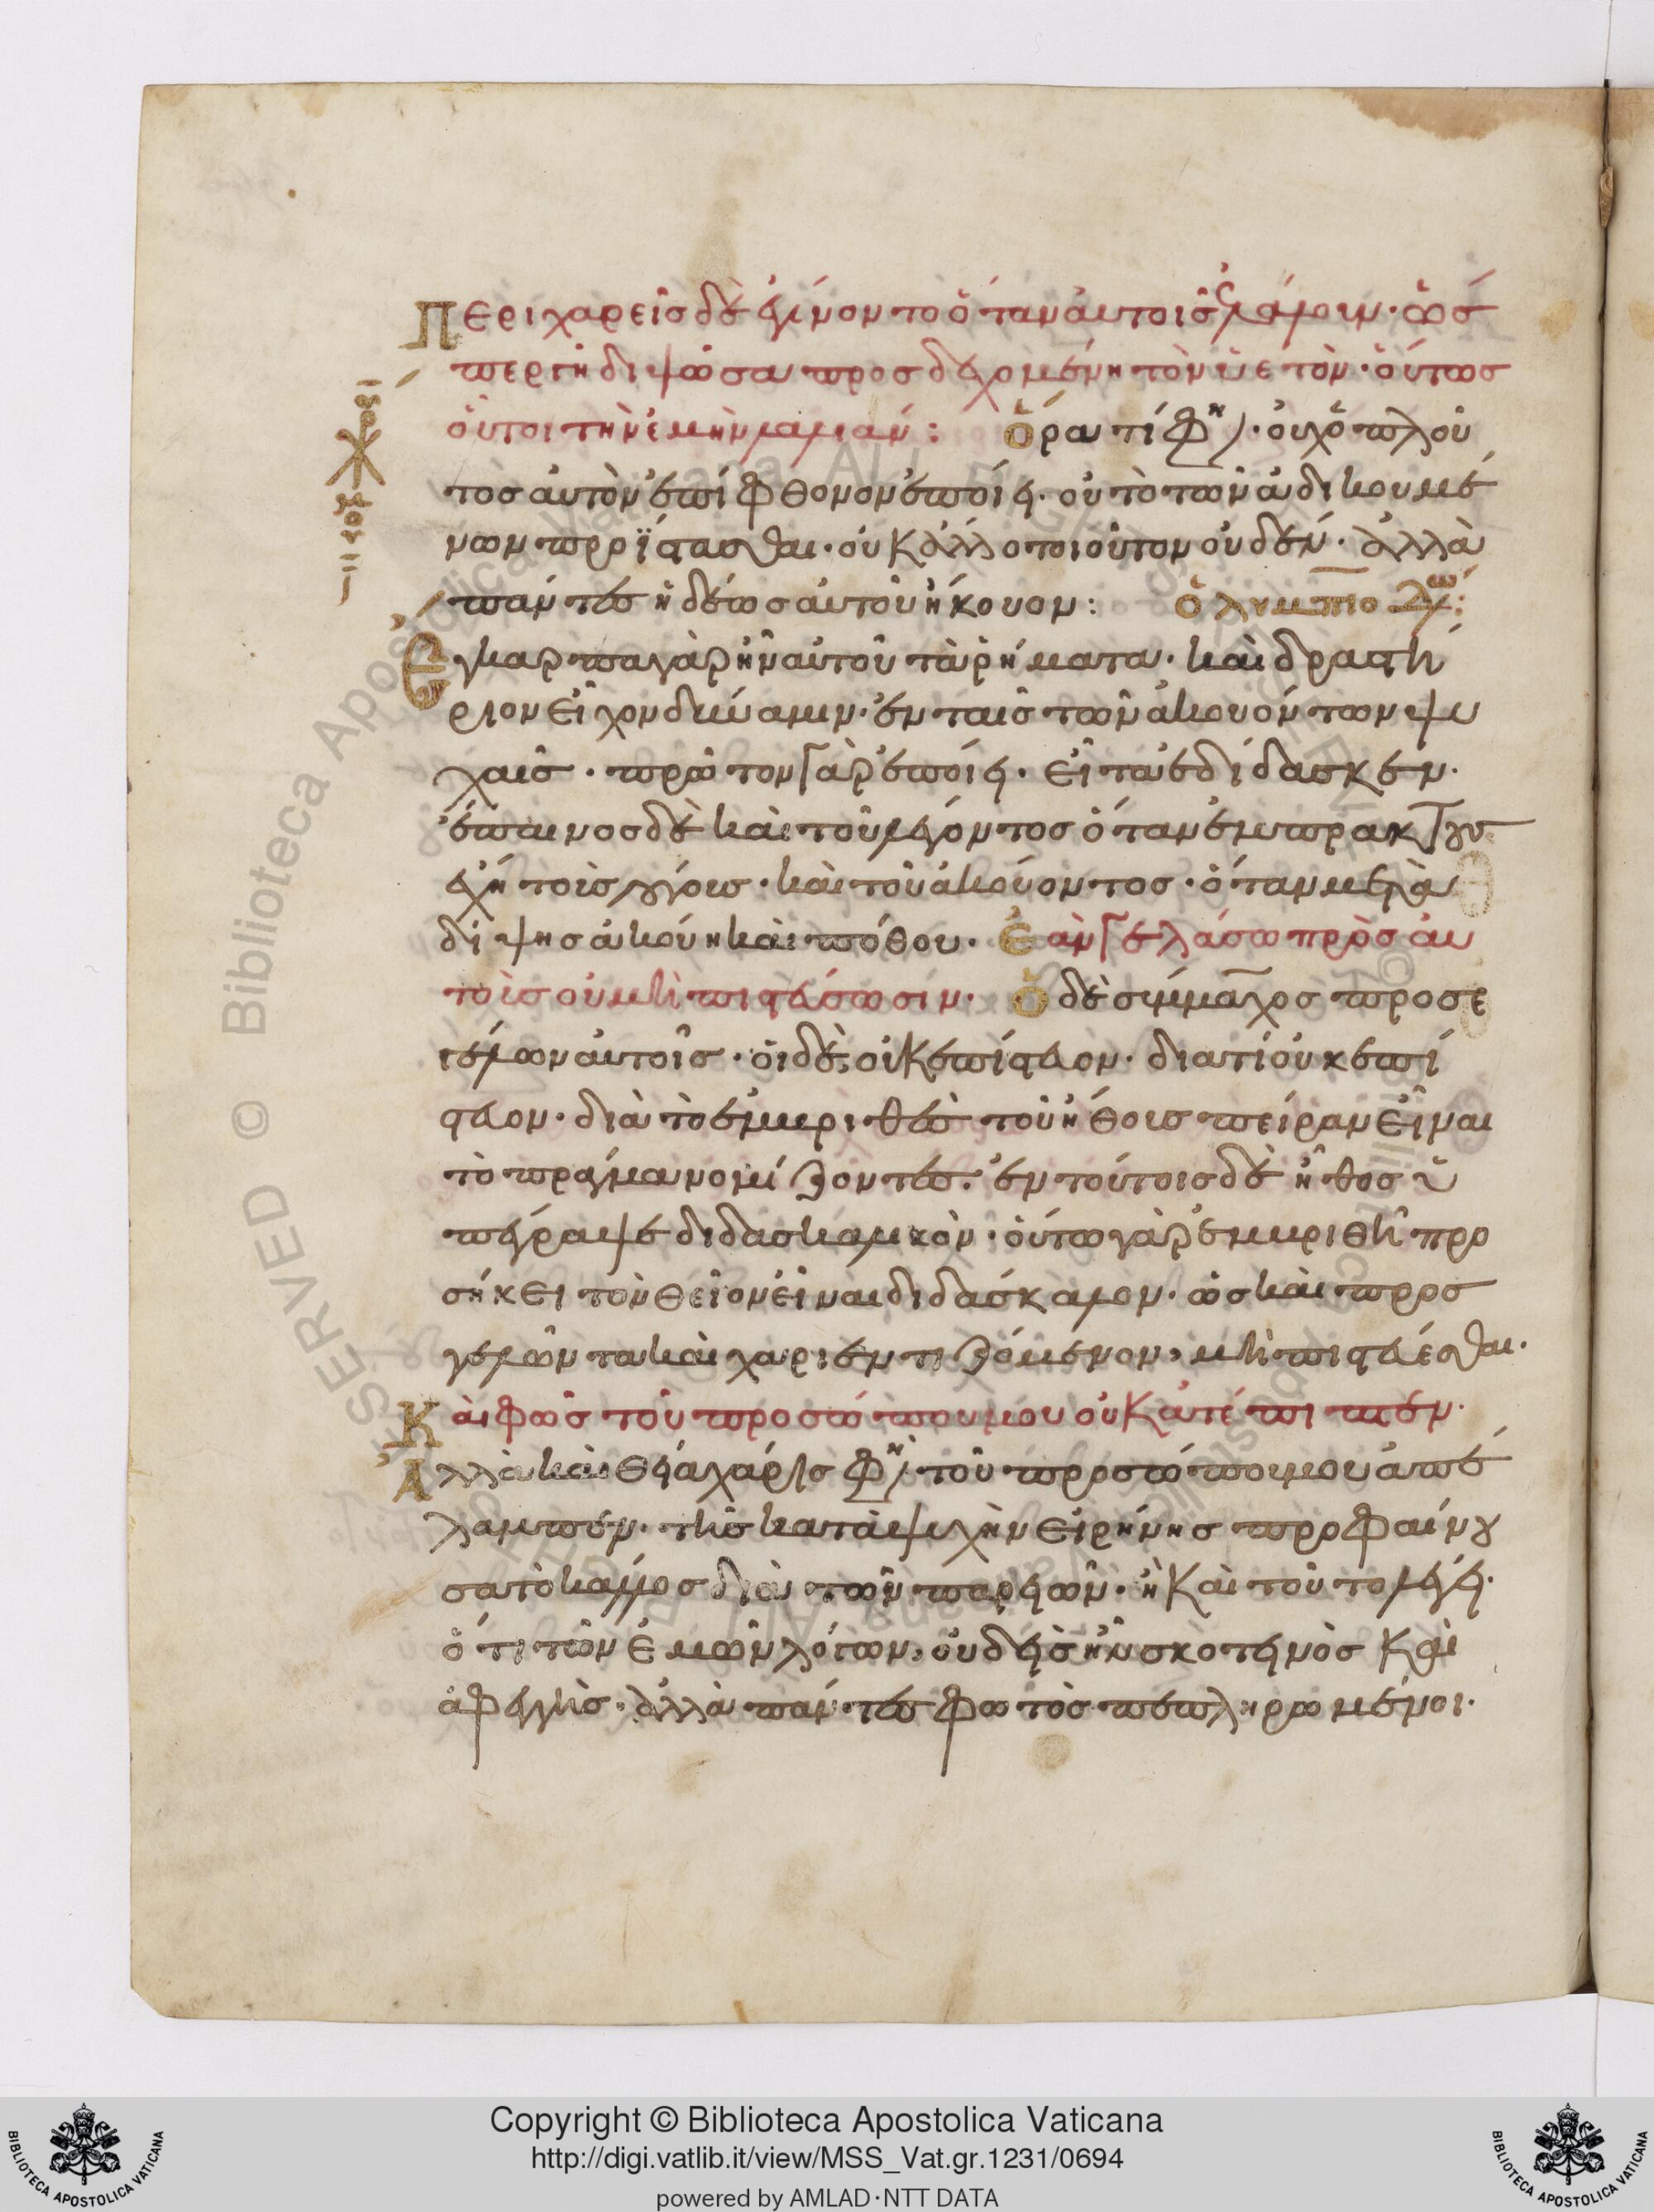 Περιχαρεῖς δὲ ἐγίνοντο ὅταν αὐτοῖς ἐλάλουν· ὥσ
περ γῆ διψῶσα προσδεχομένη τὸν ὑετὸν· οὕτως
οὗτοι τὴν ἐμὴν λαλιάν:
Ὅρα τί φη· οὐχ ὁ πλοῦ
τος αὐτὸν ἐπίφθονον ἐποίει· οὐ τὸ τῶν ἀδικουμέ
νων προΐστασθαι· οὐκ ἄλλο τοιοῦτον οὐδέν· ἀλλὰ
πάντες ἡδέως αὐτοῦ ἤκουον:
Ὀλυμπιοδώ:
Ἔγκαρπα γὰρ ἦν αὐτοῦ τὰ ῥήματα· καὶ δραστή
ριον εἶχον δύναμιν· ἐν ταῖς τῶν ἀκουόντων ψυ
χαῖς· πρῶτον γὰρ ἐποίει· εἶτα ἐδίδασκεν·
ἔπαινος δὲ καὶ τοῦ λέγοντος ὅταν ἔμπρακτον
ἔχη τοῖς λόγοις· καὶ τοῦ ἀκούοντος· ὅταν μετὰ
δίψης ἀκούη καὶ πόθου·
Ἐὰν γελάσω πρὸς αὐ
τοὺς οὐ μὴ πιστεύσωσιν·
Ὁ δὲ σύμμαχος προσε
γέλων αὐτοῖς· οἱ δὲ οὐκ ἐπίστευον· διατί οὐκ ἐπί
στευον· διὰ τὸ ἐμβριθὲς τοῦ ἤθους πεῖραν εἶναι
τὸ πρᾶγμα νομίζοντες· ἐν τούτοις δὲ ἦθος ὑ
πέγραψε διδασκαλικὸν· οὕτω γὰρ ἐμβριθῆ προ
σήκει τὸν θεῖον εἶναι διδάσκαλον· ὡς καὶ προσ
γελῶντα καὶ χαριεντιζόμενον, μὴ πιστεύεσθαι·
Καὶ φῶς τοῦ προσώπου μου οὐκ ἀπέπιπτεν·
Ἀλλὰ καὶ θεία χάρις φη τοῦ προσώπου μου ἀπέ
λαμπεν· τῆς κατὰ ψυχὴν εἰρήνης προφαίνου
σα τὸ κάλλος διὰ τῶν παρειῶν· ἢ καὶ τοῦτο λέγει·
ὅτι τῶν ἐμῶν λόγων, οὐδεὶς ἦν σκοτεινὸς καὶ
ἀφεγγὴς· ἀλλὰ πάντες φωτὸς πεπληρωμένοι·
Copyright © Biblioteca Apostolica Vaticana
http://digi.vatlib.it/view/MSS_Vat.gr.1231/0694
powered by AMLAD·NTT DATA
BIBLIOTECA APOSTOLICA VATICANA
BIBLIOTECA APOSTOLICA VATICANA